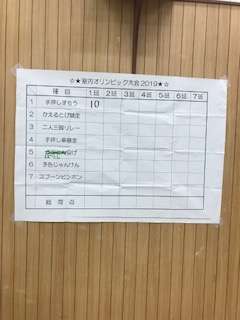 ☆★室内オリンピック大会2019★☆
種目 1班 2班 3班 4班 5班 6班 7班
1 手押しずもう 10
2
3 二人三脚リレー
4 手押し車競走
5
6 多色じゃんけん
7 スプーンピンポン
総得点